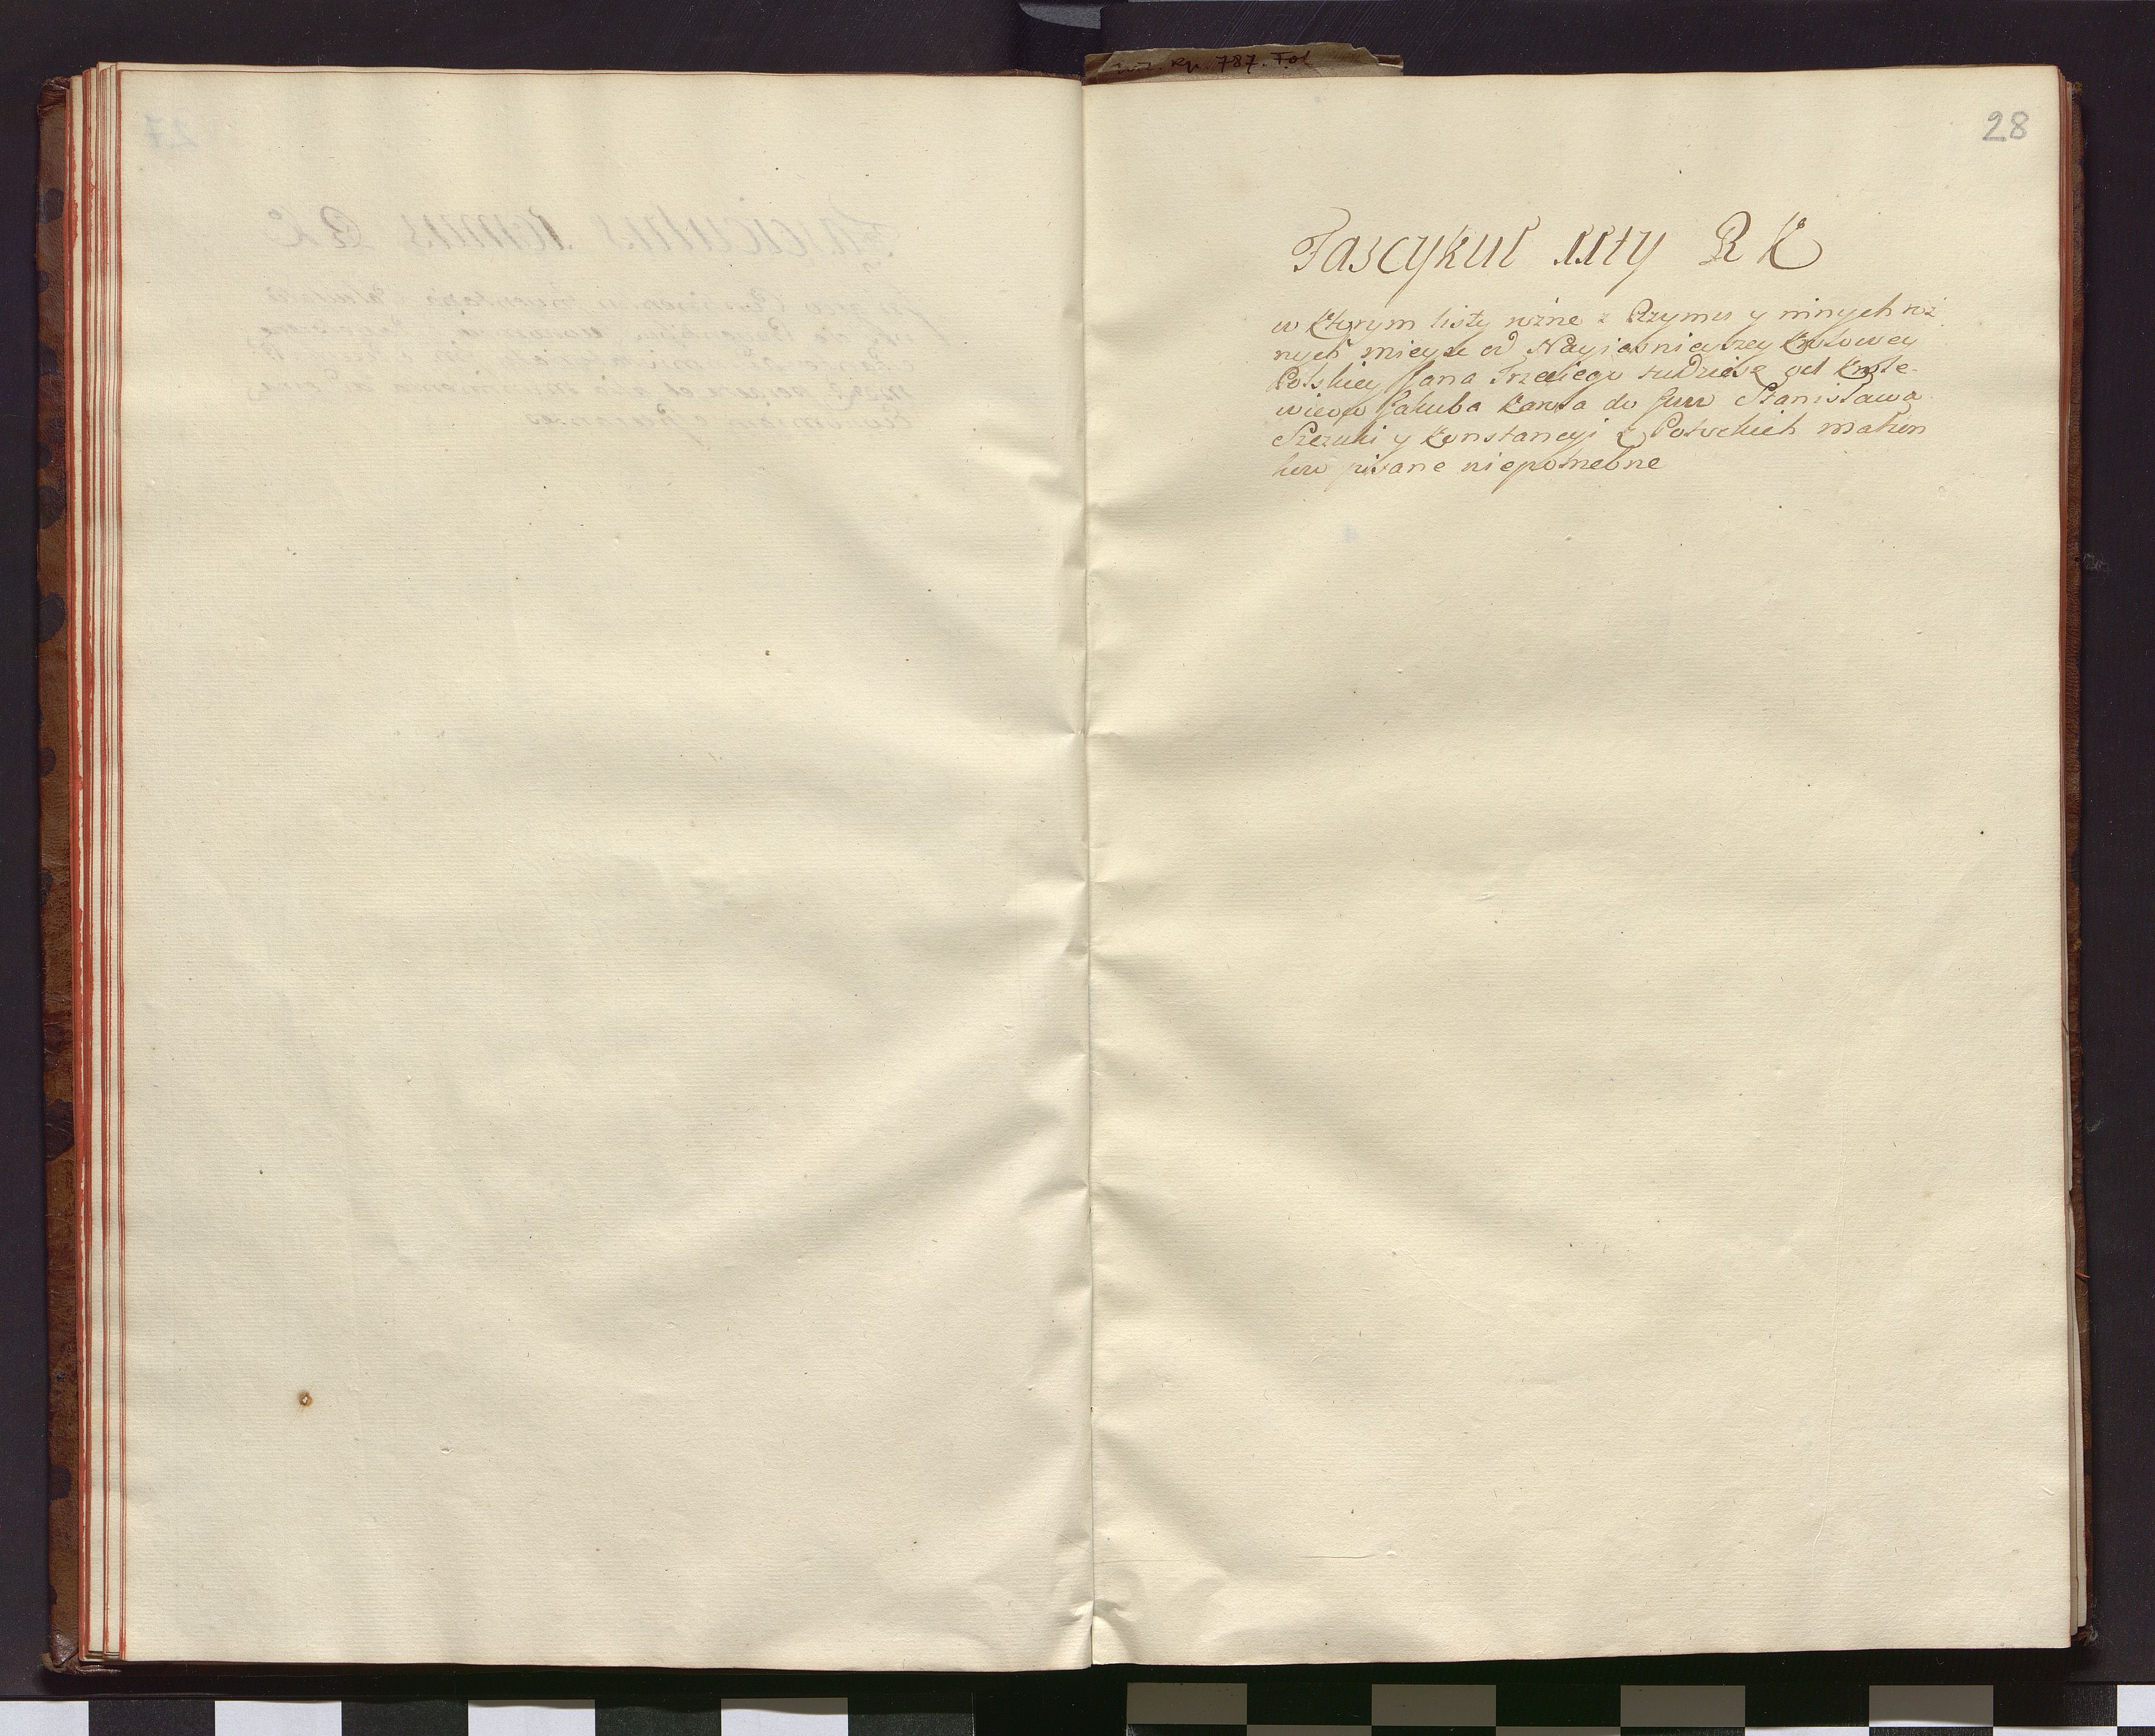 787. Fol
28
Fascykuł 11ty R K
w Ktorym listy rożne z Rzymu y innych roż
nych mieysc od Nayiasnieyszey Krolowey
Polskiey Jana Trzeciego tudziesz od Krole-
wicow Jakuba Karola do Jww Stanisława
Szczuki y Konstancyi z Potockich małżon
kow pisane niepotrzebne